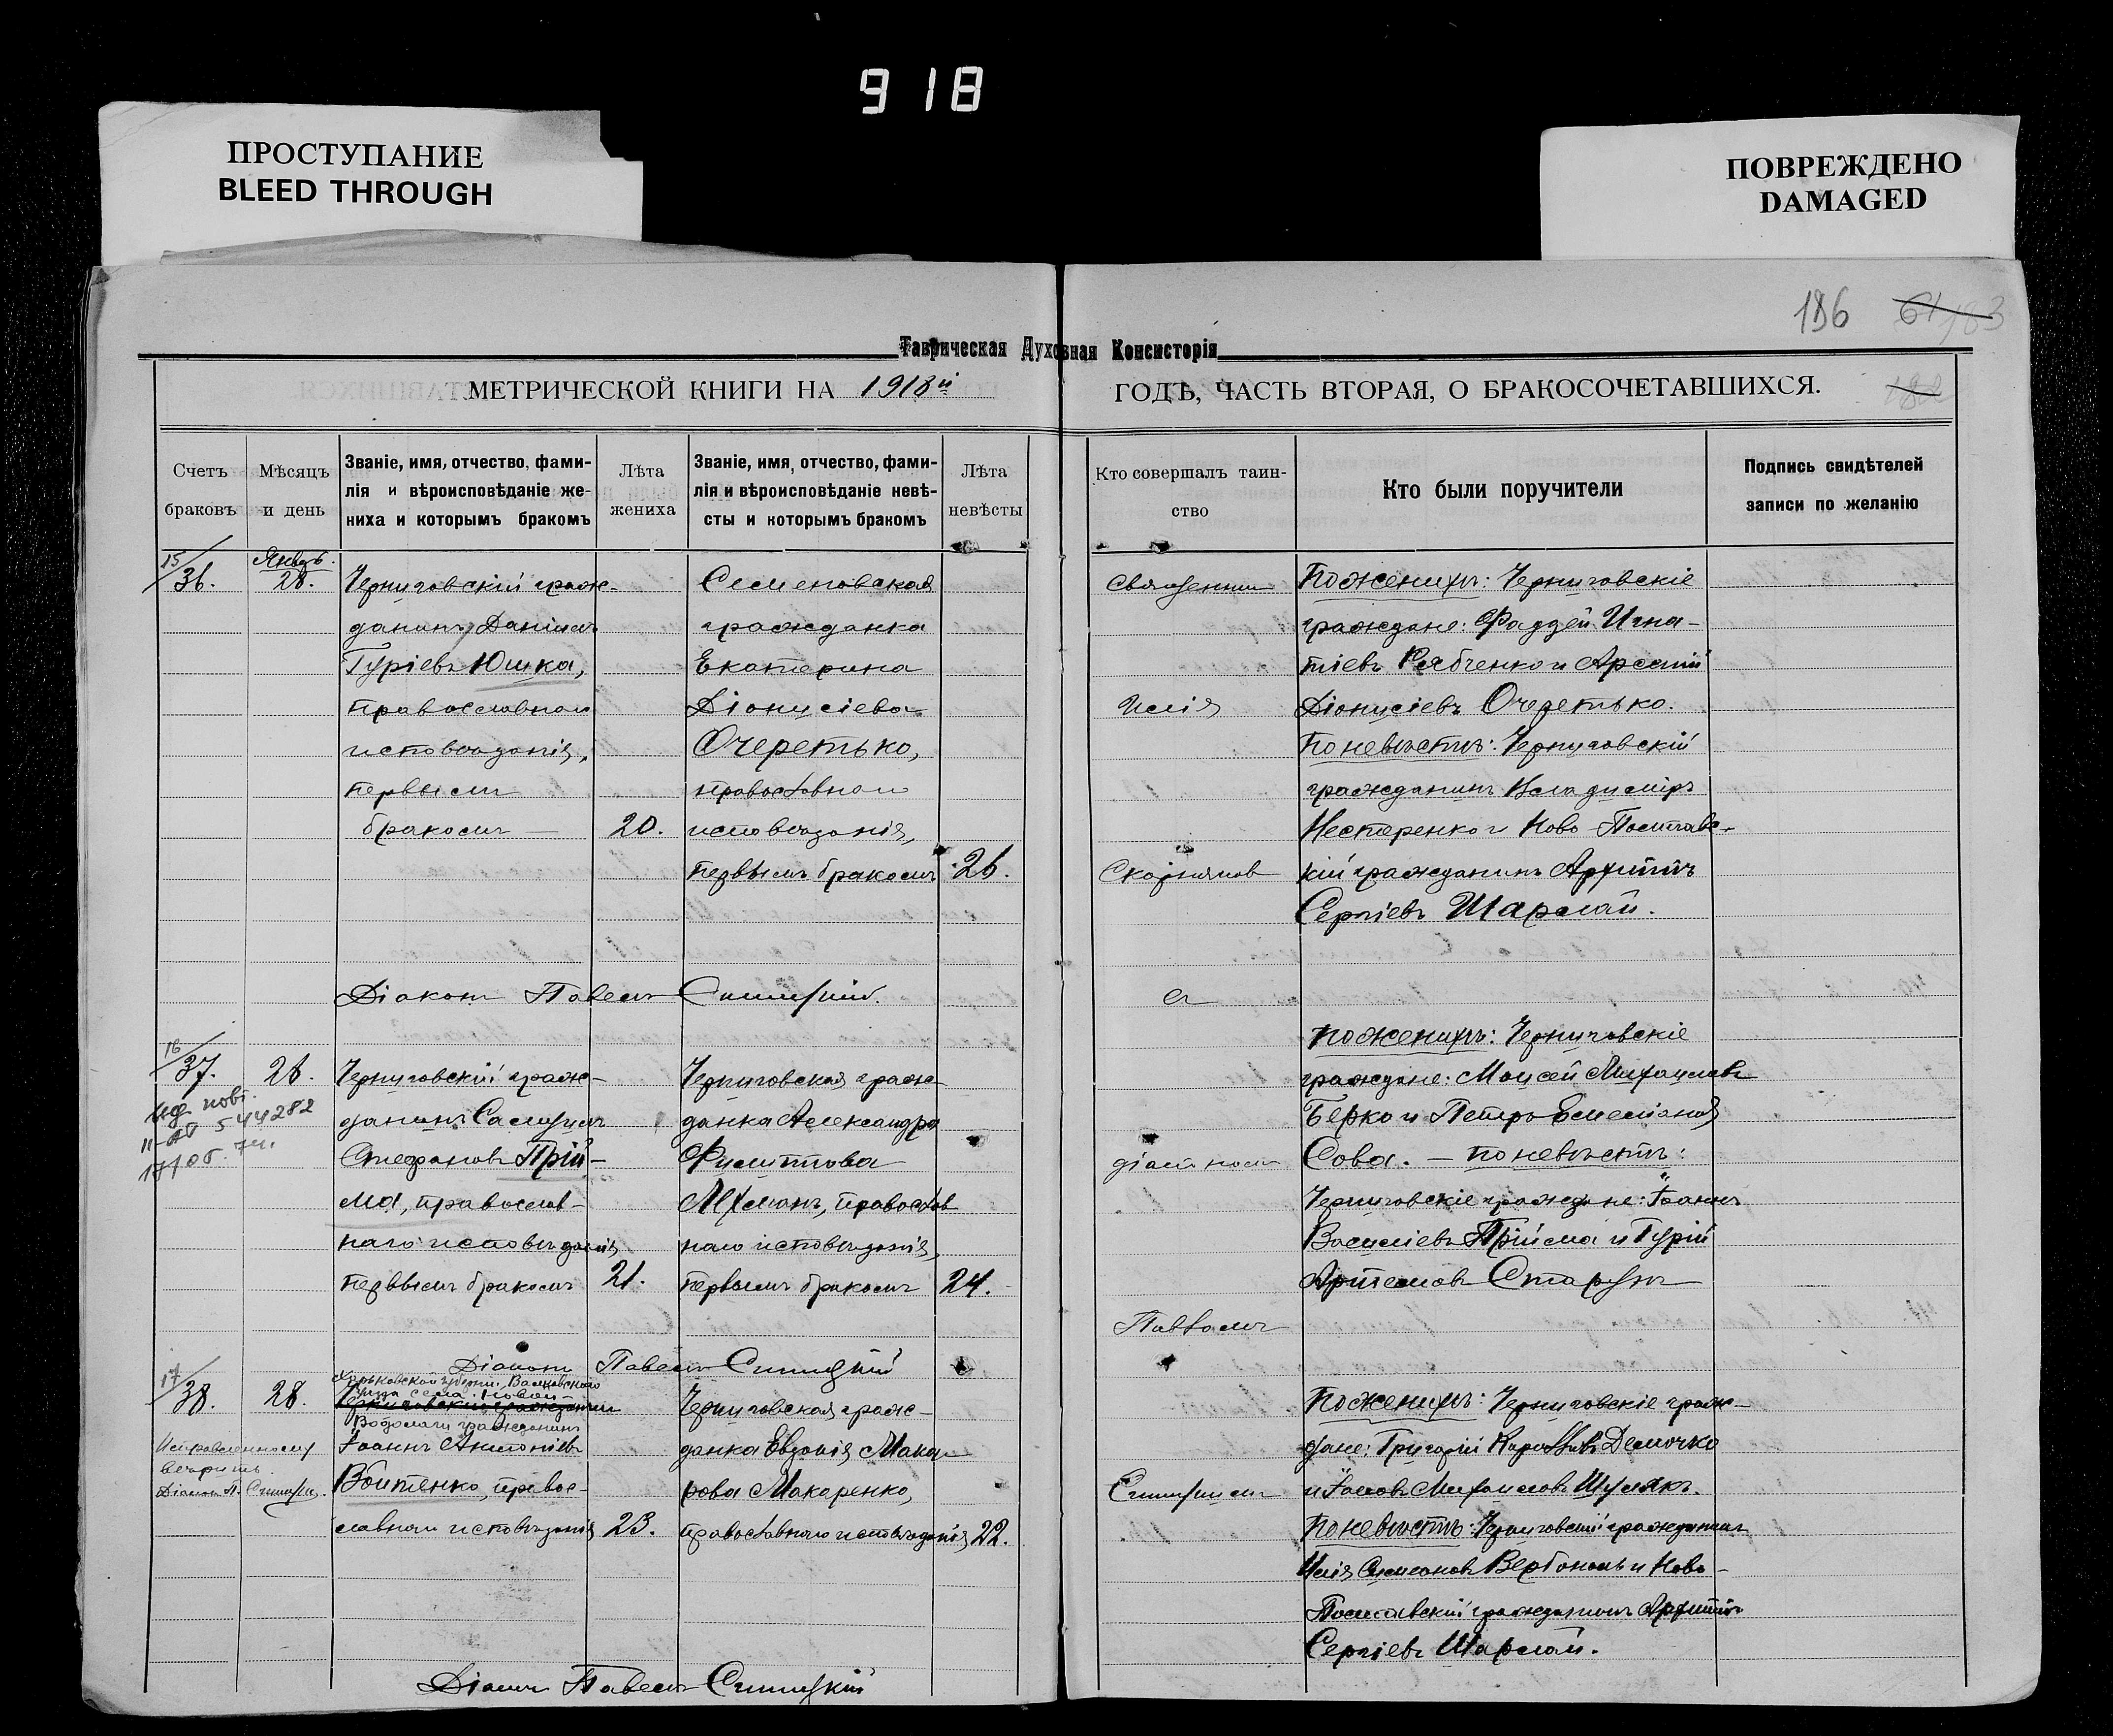 918
ПРОСТУПАНИЕ
BLEED THROUGH
ПОВРЕЖДЕНО
DAMAGED
186
Таврическая Духовная Консисторія
МЕТРИЧЕСКОЙ КНИГИ НА 1918й
ГОДЪ, ЧАСТЬ ВТОРАЯ, О БРАКОСОЧЕТАВШИХСЯ.
Счетъ браковъ
Мѣсяцъ и день
Званіе, имя, отчество, фами-
лія и вѣроисповѣданіе же-
ниха и которымъ бракомъ
Лѣта жениха
Званіе, имя, отчество, фами-
лія и вѣроисповѣданіе невѣ-
сты и которымъ бракомъ
Лѣта невѣсты
Кто совершалъ таин-
ство
Кто были поручители
Подпись свидѣтелей
записи по желанію
15/36.
Январь.
28.
Черниговскій граж-
данинъ Даніилъ
Гуріевъ Юшка,
православнаго
исповѣданія,
первымъ
бракомъ —
20.
Семеновская
гражданка
Екатерина
Діонисіева
Очеретько,
православнаго
исповѣданія,
первымъ бракомъ
26.
Поженихѣ: Черниговскіе
граждане: Фаддей Игна-
тіевъ Рябченко и Арсеній
Діонисіевъ Очеретько.
Поневѣстѣ: Черниговскій
гражданинъ Владиміръ
Нестеренко и Ново-Полтавс-
кій гражданинъ Архиппъ
Сергіевъ Шармай.
Діаконъ Павелъ Синицкій.
16/37.
28.
Черниговскій граж-
данинъ Самуилъ
Стефановъ Прій-
ма, православ-
наго исповѣданія,
первымъ бракомъ
21.
Черниговская граж-
данка Александра
Филиппова
православ
наго исповѣданія,
первымъ бракомъ
24.
Поженихѣ: Черниговскіе
граждане: Моисей Михаиловъ
Берко и Петръ Емеліановъ
Сова. — поневѣстѣ:
Черниговскіе граждане: Іоаннъ
Василіевъ Прійма и Гурій
Артемовъ Старухъ
Діаконъ Павелъ Синицкій
17/38.
28.
Харьковской губерніи, Валковскаго
уѣзда села Новой-
Черниговскій гражданинъ
Водолаги гражданинъ
Іоаннъ Антоніевъ
Войтенко, правос-
лавнаго исповѣданія
23.
Черниговская граж-
данка Евдокія Мака-
рова Макаренко,
православнаго исповѣданія,
22.
Исправленному
вѣрить.
Діаконъ П. Синицкій.
Поженихѣ: Черниговскіе граж-
дане: Григорій Карповъ Демочко
и Іаковъ Михаиловъ Шулякъ.
Поневѣстѣ: Черниговскій гражданинъ
Илія Симеоновъ и Ново-
Полтавскій гражданинъ Архиппъ
Сергіевъ Шармай.
Діаконъ Павелъ Синицкій
Священни
Илія
Скорняков
съ
діакономъ
Павломъ
Синицкимъ